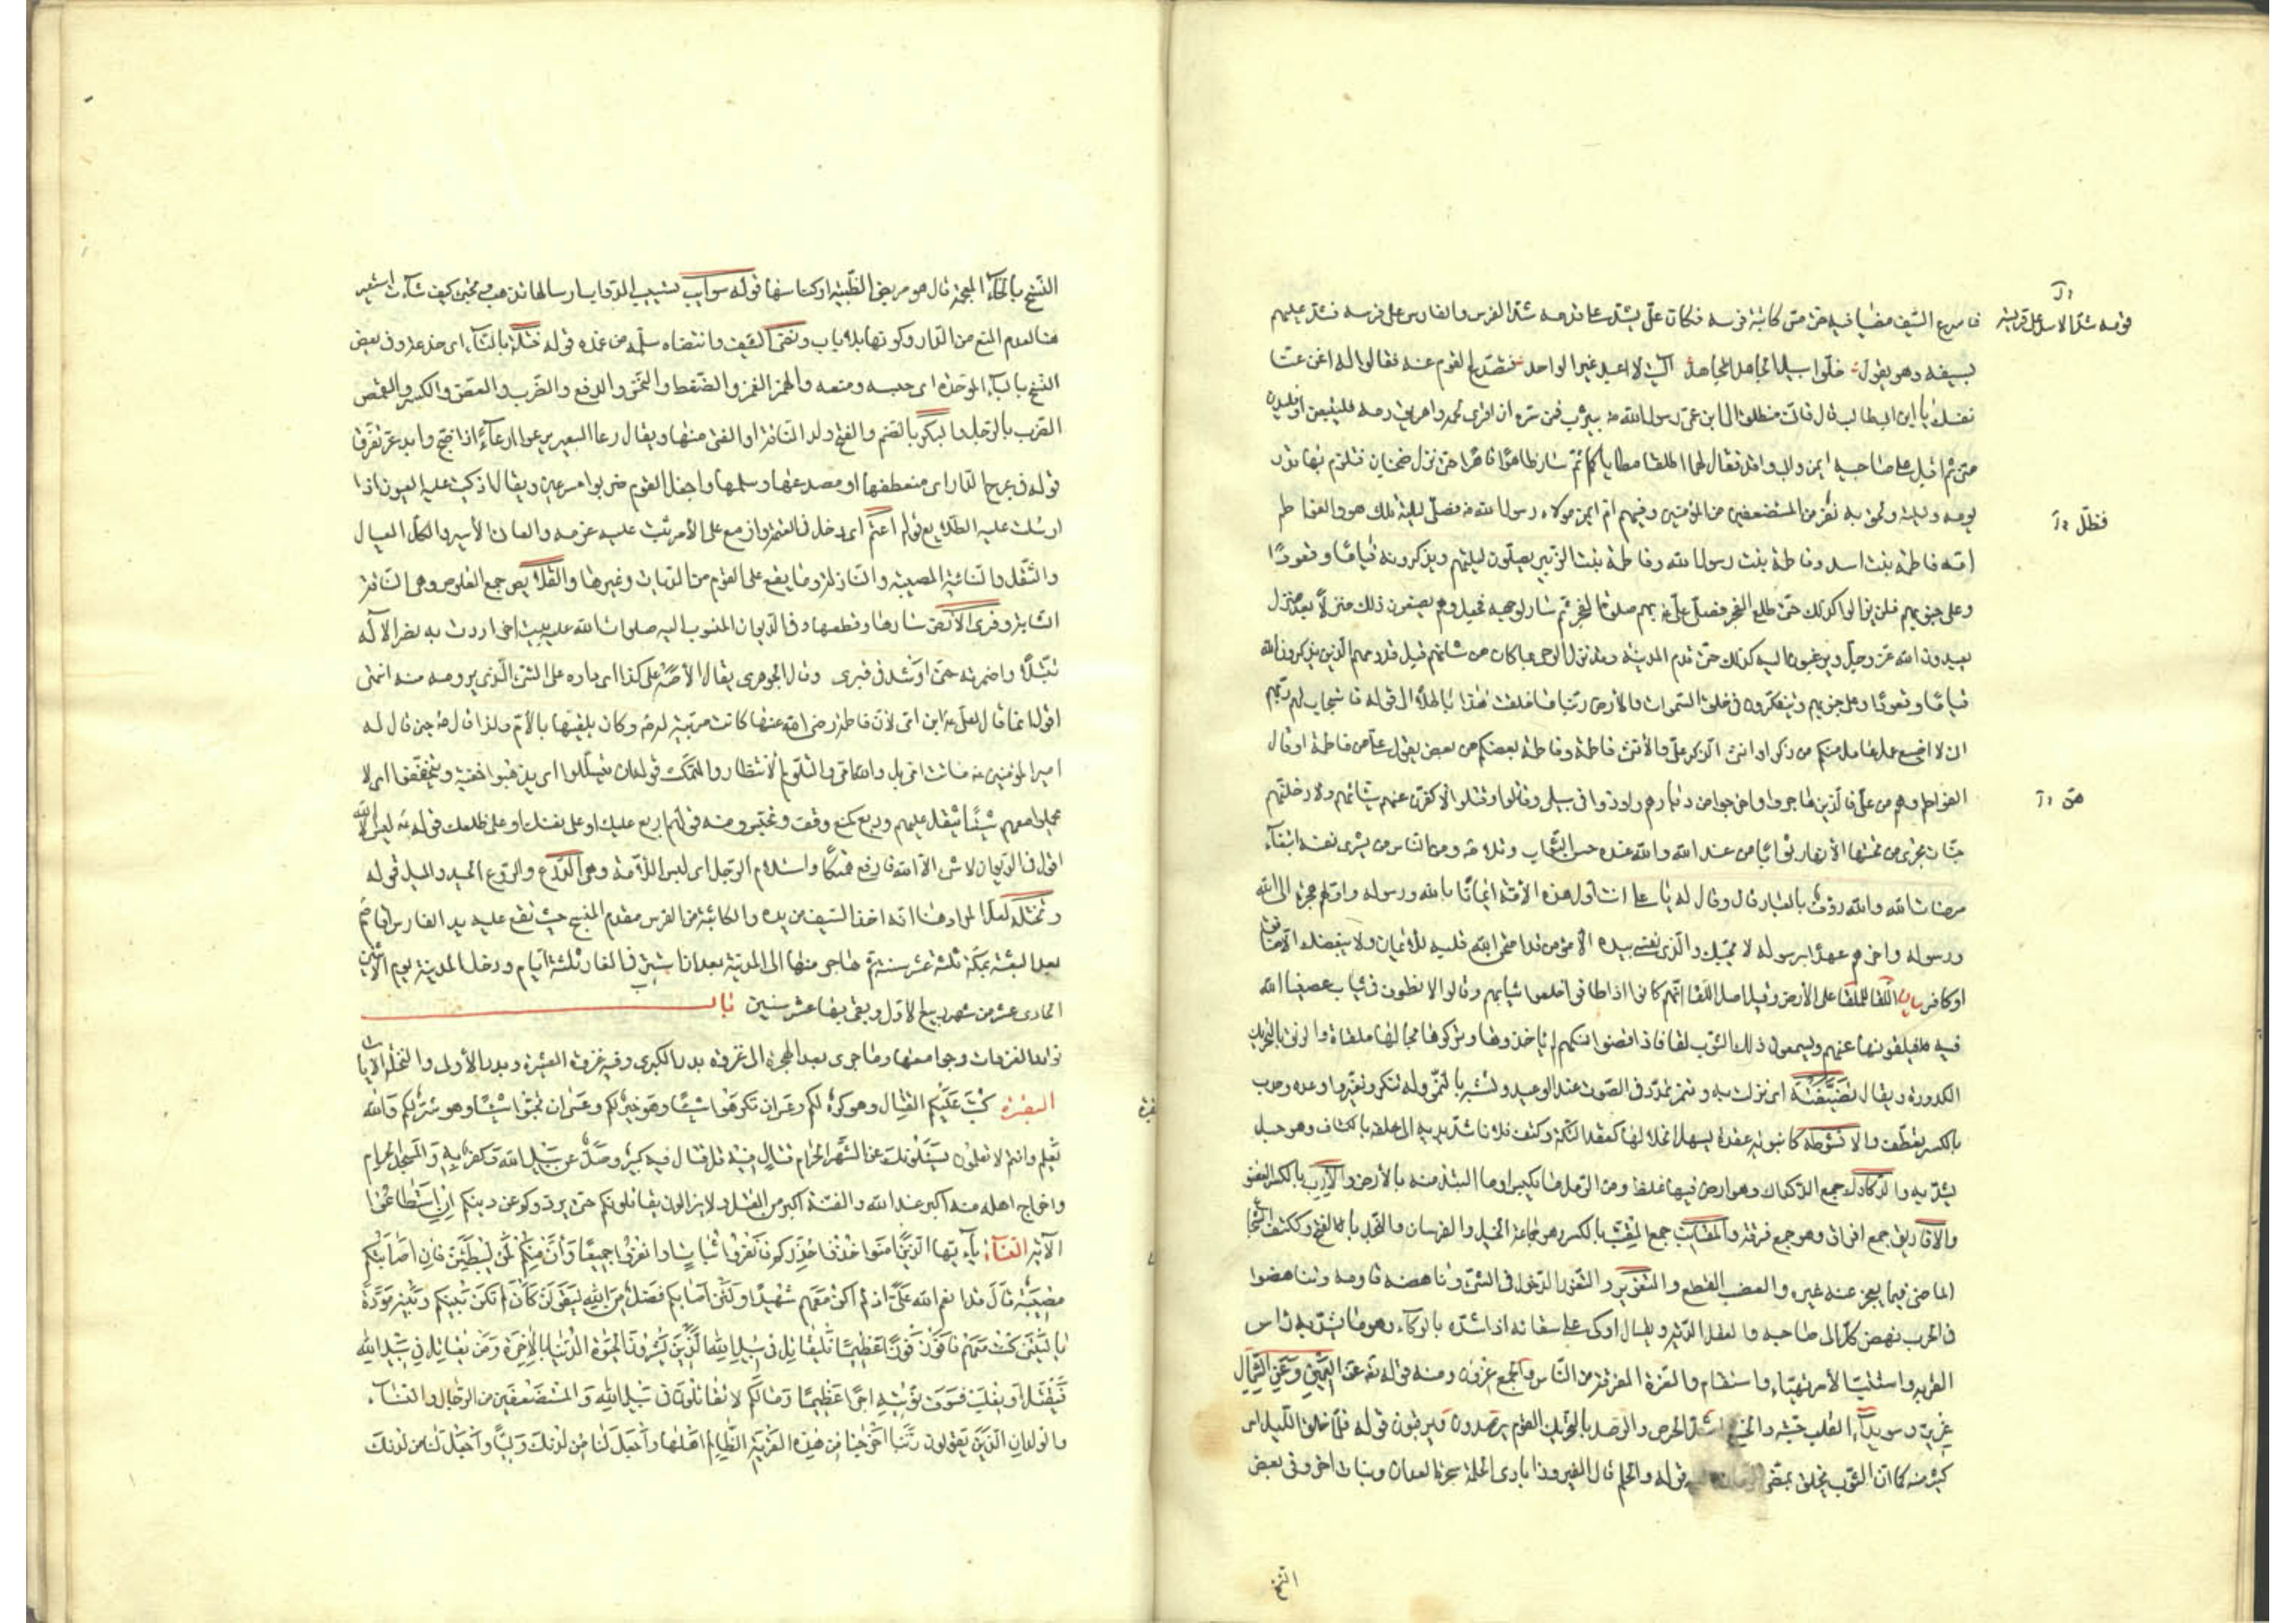 فاسرع السيف مضيا فيه حتى مس كاثبة فرسه فكان علي يشد على قدمه شد الفرس والفارس على فرسه فشد عليهم
قوله شد الاسد على فريسته
بسيفه وهو يقول خلوا سبيل الجاهد المجاهد آليت لا اعبد غير الواحد فتصدع القوم عنه فقالوا له اغن عنا
نفسك يا ابن ابي طالب قال فاني منطلق الى ابن عمي رسول الله بيثرب فمن سره ان افري لحمه واهريق دمه فليتبعني او فليدن
مني ثم اقبل على صاحبيه ايمن وابي واقد فقال لهما اطلقا مطاياكما ثم سار ظاهرا قاهرا حتى نزل ضجنان فتلوم بها قدر
يومه وليلته ولحق به نفر من المستضعفين من المؤمنين وفيهم ام ايمن مولاة رسول الله فصلى ليلته تلك هو والفواطم
فظل
امه فاطمة بنت اسد وفاطمة بنت رسول الله وفاطمة بنت الزبير يصلون ليلتهم ويذكرونه قياما وقعودا
وعلى جنوبهم فلن يزالوا كذلك حتى طلع الفجر فصلى علي بهم صلوة الفجر ثم سار لوجهه فجعل وهم يصنعون ذلك منزلا بعد منزل
يعبدون الله عز وجل ويرغبون اليه كذلك حتى قدم المدينة وقد نزل الوحي بما كان من شانهم قبل قدومهم الذين يذكرون الله
قياما وقعودا وعلى جنوبهم ويتفكرون في خلق السموات والارض ربنا ما خلقت هذا باطلا الى قوله فاستجاب لهم ربهم
اني لا اضيع عمل عامل منكم من ذكر او انثى الذكر علي والانثى فاطمة وفاطمة بعضكم من بعض يقول علي من فاطمة او قال
الفواطم وهم من علي فالذين هاجروا واخرجوا من ديارهم واوذوا في سبيلي وقاتلوا وقتلوا لاكفرن عنهم سيئاتهم ولادخلنهم
هن
جنات تجري من تحتها الانهار ثوابا من عند الله والله عنده حسن الثواب وتلا ومن الناس من يشري نفسه ابتغاء
مرضات الله والله رؤف بالعباد قال وقال له يا علي انت اول هذه الامة ايمانا بالله ورسوله واولهم هجرة الى الله
ورسوله واخرهم عهدا برسوله لا يحبك والذي نفسي بيده الا مؤمن قد امتحن الله قلبه للايمان ولا يبغضك الا منافق
او كافر بيان اللقا الملقا على الارض وقيل اصل اللقا انهم كانوا اذا طافوا خلعوا ثيابهم وقالوا لا نطوف في ثياب عصينا الله
فيه فيلقونها عنهم ويسمون ذلك الثوب لقا فاذا قضوا نسكهم لم ياخذوها وتركوها بحالها ملقاة والرنق بالتحريك
الكدورة ويقال تضيفته اي نزلت به وتنمر تمدد في الصوت عند الوعيد وتشبه بالنمر وله تنكر وتغير واوعده وحدب
بالكسر يعطف والانشوطة كانبوبة عقدة يسهل انحلالها كعقد التكة وكتف فلانا شد يديه الى خلف بالكتاف وهو حبل
يشد به والدكادك جمع الدكداك وهو ارض فيها غلظ ومن الرمل ما تكبس او ما البتد منه بالارض والارب بالكسر العضو
والافاريق جمع افراق وهو جمع فرقة والمقانب جمع المقنب بالكسر وهو جماعة الخيل والفرسان والنجد بالفتح وككتف الشجاع
الماضي فيما يعجز عنه غيره والعضب القطع والتغوير والتغور الدخول في الشيء وناهضه قاومه وتناهضوا
في الحرب نهض كل الى صاحبه والعفل الدثر ويقال اوكى على سقائه اذا شده بالوكاء وهو ما يشد به راس
القربة واستتب الامر تهيا واستقام والعزة الفرقة من الناس والجمع عزون ومنه قوله تعالى عن اليمين وعن الشمال
عزين وسويداء القلب حبته والجشع اشد الحرص والرصد بالتحريك القوم يرصدون فيرقبون قوله فلما خلق الليل اي
كثر منه كما ان الثوب يخلق بمضي الزمان عليه قوله والحلم قال الفيروزابادي الحلمة شجرة السعدان ونبات اخر وفي بعض
النسخ
النسخ بالخاء المعجمة قال هو مربض الظبية او كناسها قوله سوايب تسييب الدواب ارسالها تذهب وتجيء كيف شاءت استعير
هنا لعدم المنع من الدار وكونها بلا باب ونضى السيف وانتضاه سله من غمده قوله ختله بالتاء اي خدعه وفي بعض
النسخ بالباء الموحدة اي حبسه ومنعه والهمز الغمز والضغط والنخس والدفع والضرب والعض والكسر والقمص
الضرب بالرجل والبكر بالضم والفتح ولد الناقة او الفتي منها ويقال رغا البعير يرغو الرغاء اذا ضج وابدعر تفرقا
قوله في عرج الدار اي منعطفها او مصدعها وسلمها واجفل القوم هربوا مسرعين ويقال ذكيت عليه العيون اذا
ارسلت عليه الطلايع قوله اعتم اي دخل في العتمة وازمع على الامر ثبت عليه عزمه والعان الاسير والكل العيال
والثقل والنائبة المصيبة والنازلة وما يقع على القوم من الديات وغيرها والقلايص جمع القلوص وهي الناقة
الشابة وفري الارض سارها وقطعها وفي الديوان المنسوب اليه صلوات الله عليه بيت اخر اردت به نصر الاله
تبتلا واضمرته حتى اوسد في قبري وقال الجوهري يقال الاصه على كذا اي داره على الشيء الذي يرومه منه انتهى
اقول انما قال لعلي يا ابن امي لان فاطمة رضي الله عنها كانت مربية له وكان يلقبها بالام ولذا قال حين قال له
امير المؤمنين ماتت امي بل والله امي والتلوم الانتظار والتمكث قوله ان يتسللوا اي يذهبوا خفية ويتخففوا اي لا
يحملوا معهم شيئا يثقل عليهم وربع كمنع وقف وتحبس ومنه قولهم اربع عليك او على نفسك او على ظلعك قوله ليس الا الله
اقول في الديوان لا شيء الا الله فارفع همكا واستلام الرجل اي لبس اللأمة وهي الدرع والروع الحيد والميل قوله
وتختله لعل المراد هنا انه اخذ السيف من يده والكاثبة من الفرس مقدم المنسج حيث تقع عليه يد الفارس اقام
بعد البعثة بمكة ثلثة عشر سنة ثم هاجر منها الى المدينة بعد ان استتر في الغار ثلثة ايام ودخل المدينة يوم الاثنين
الحادي عشر من شهر ربيع الاول وبقي بها عشر سنين باب
نوادر الغزوات وجوامعها وما جرى بعد الهجرة الى غزوة بدر الكبرى وفيه غزوة العشيرة وبدر الاولى والنخلة الايات
البقرة كُتِبَ عَلَيْكُمُ القِتَالُ وهو كره لكم وعسى ان تكرهوا شيئا وهو خير لكم وعسى ان تحبوا شيئا وهو شر لكم والله
يعلم وانتم لا تعلمون يسئلونك عن الشهر الحرام قتال فيه قل قتال فيه كبير وصد عن سبيل الله وكفر به والمسجد الحرام
واخراج اهله منه اكبر عند الله والفتنة اكبر من القتل ولا يزالون يقاتلونكم حتى يردوكم عن دينكم ان استطاعوا
الاية النساء يا ايها الذين امنوا خذوا حذركم فانفروا ثبات او انفروا جميعا وان منكم لمن ليبطئن فان اصابتكم
مصيبة قال قد انعم الله علي اذ لم اكن معهم شهيدا ولئن اصابكم فضل من الله ليقولن كان لم تكن بينكم وبينه مودة
يا ليتني كنت معهم فافوز فوزا عظيما فليقاتل في سبيل الله الذين يشرون الحيوة الدنيا بالاخرة ومن يقاتل في سبيل الله
فيقتل او يغلب فسوف نؤتيه اجرا عظيما وما لكم لا تقاتلون في سبيل الله والمستضعفين من الرجال والنساء
والولدان الذين يقولون ربنا اخرجنا من هذه القرية الظالم اهلها واجعل لنا من لدنك وليا واجعل لنا من لدنك